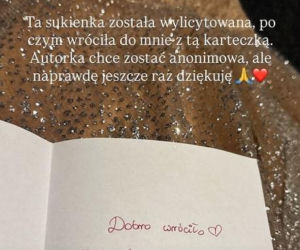 Ta sukienka została wylicytowana, po
czym wróciła do mnie z tą karteczką.
Autorka chce zostać anonimowa, ale
naprawdę jeszcze raz dziękuję 🙏❤️
Dobro wróciło ♡